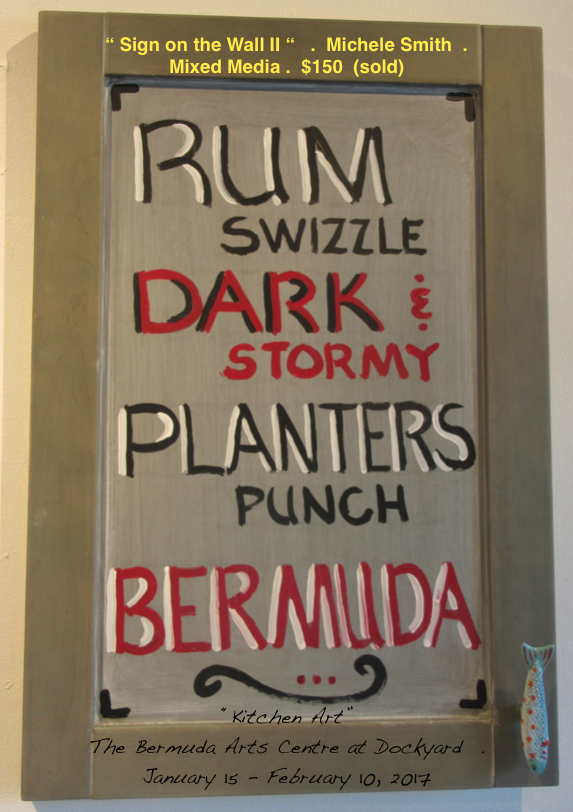 “ Sign on the Wall II “ . Michele Smith .
Mixed Media . $150 (sold)
RUM
SWIZZLE
DARK &
STORMY
PLANTERS
PUNCH
BERMUDA
...
"Kitchen Art"
The Bermuda Arts Centre at Dockyard .
January 15 - February 10, 2017